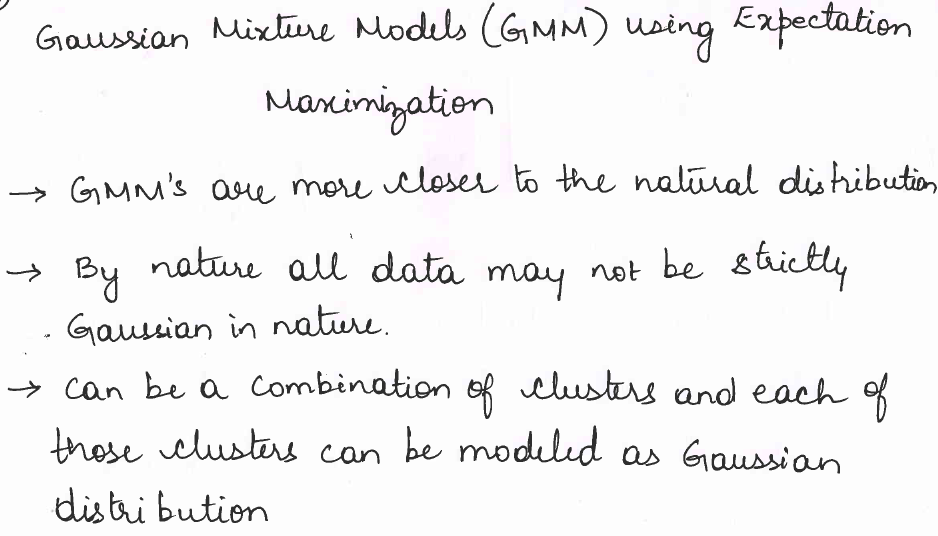 Gaussian Mixture Models (GMM) using Expectation
Maximization
→ GMM's are more closer to the natural distribution
→ By nature all data may not be strictly
Gaussian in nature.
→ can be a combination of clusters and each of
those clusters can be modeled as Gaussian
distribution